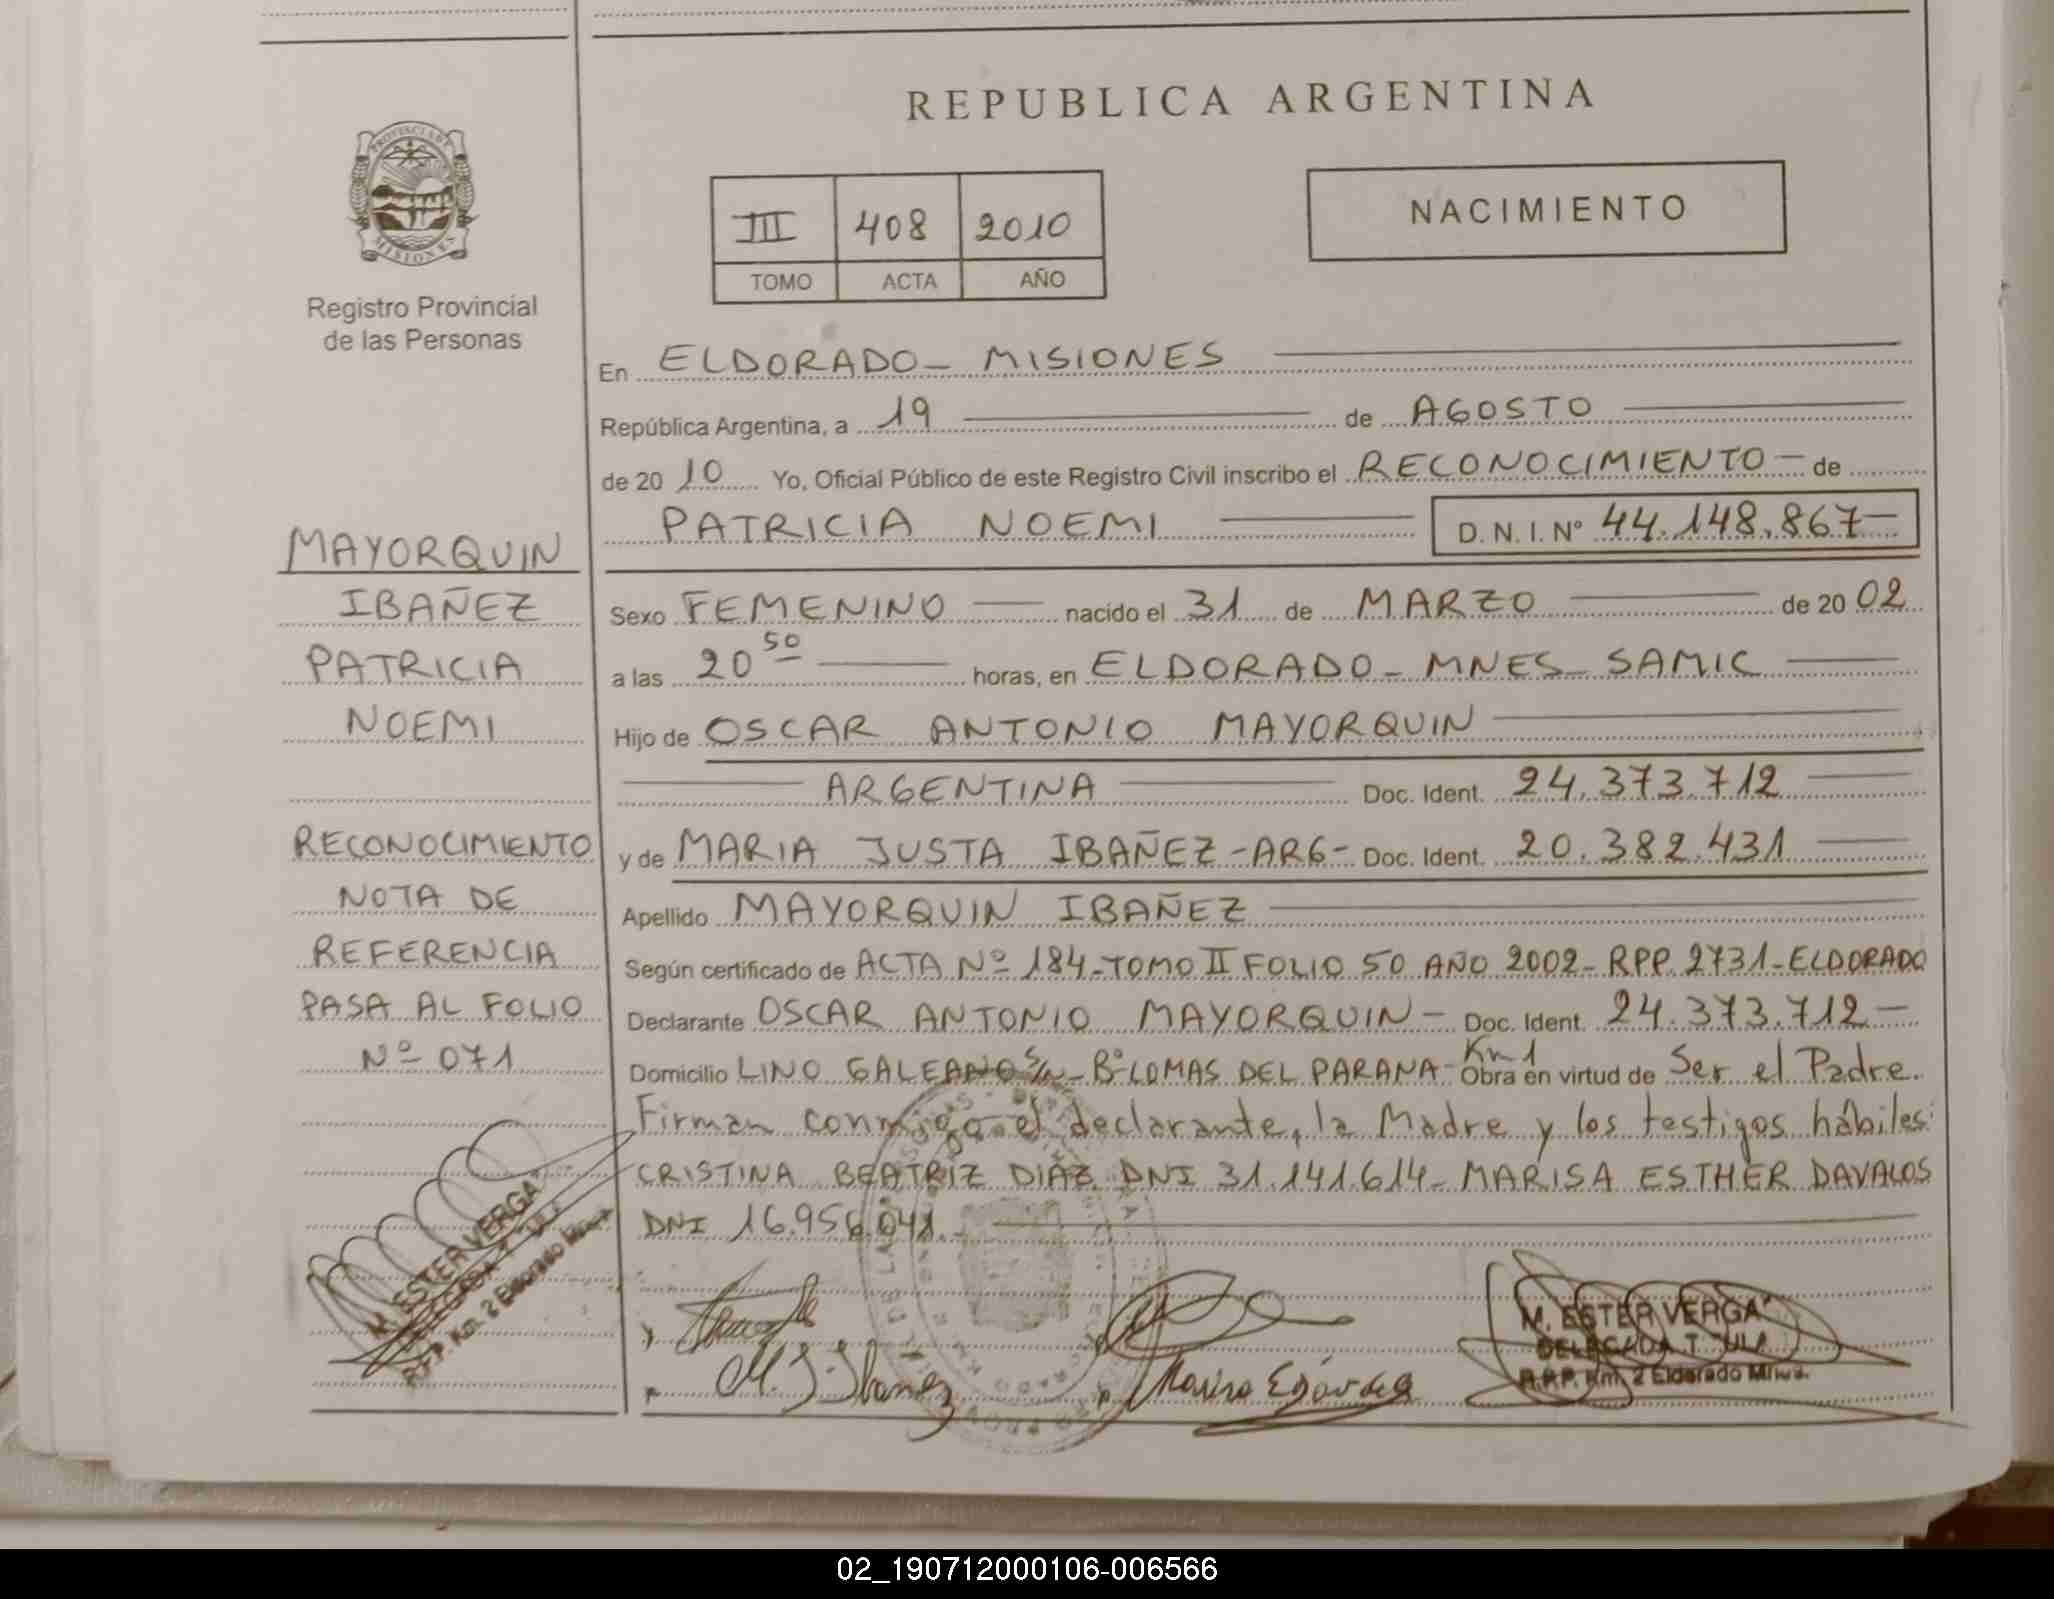 REPUBLICA ARGENTINA
PROVINCIA DE
MISIONES
Registro Provincial
de las Personas
III 408 2010
TOMO ACTA AÑO
NACIMIENTO
En ELDORADO - MISIONES
República Argentina, a 19 de AGOSTO
de 20 10 Yo, Oficial Público de este Registro Civil inscribo el RECONOCIMIENTO - de
PATRICIA NOEMI D.N.I. Nº 44.148.867
Sexo FEMENINO nacido el 31 de MARZO de 20 02
a las 20 50 horas, en ELDORADO - MNES - SAMIC
Hijo de OSCAR ANTONIO MAYORQUIN
ARGENTINA Doc. Ident. 24.373.712
y de MARIA JUSTA IBAÑEZ - ARG - Doc. Ident. 20.382.431
Apellido MAYORQUIN IBAÑEZ
Según certificado de ACTA Nº 184 - TOMO II FOLIO 50 AÑO 2002 - RPP. 2731 - ELDORADO
Declarante OSCAR ANTONIO MAYORQUIN - Doc. Ident. 24.373.712 -
Domicilio LINO GALEANO S/N - Bº LOMAS DEL PARANA - Km 1 Obra en virtud de Ser el Padre.
Firman conmigo el declarante, la Madre y los testigos hábiles:
CRISTINA BEATRIZ DIAZ DNI 31.141.614 - MARISA ESTHER DAVALOS
DNI 16.956.041.
MAYORQUIN
IBAÑEZ
PATRICIA
NOEMI
RECONOCIMIENTO
NOTA DE
REFERENCIA
PASA AL FOLIO
Nº 071
M. ESTER VERGA
DELEGADA
R.P.P. Km. 2 Eldorado
M. J. Ibañez
M. ESTER VERGA
DELEGADA
R.P.P. Km. 2 Eldorado
02_190712000106-006566